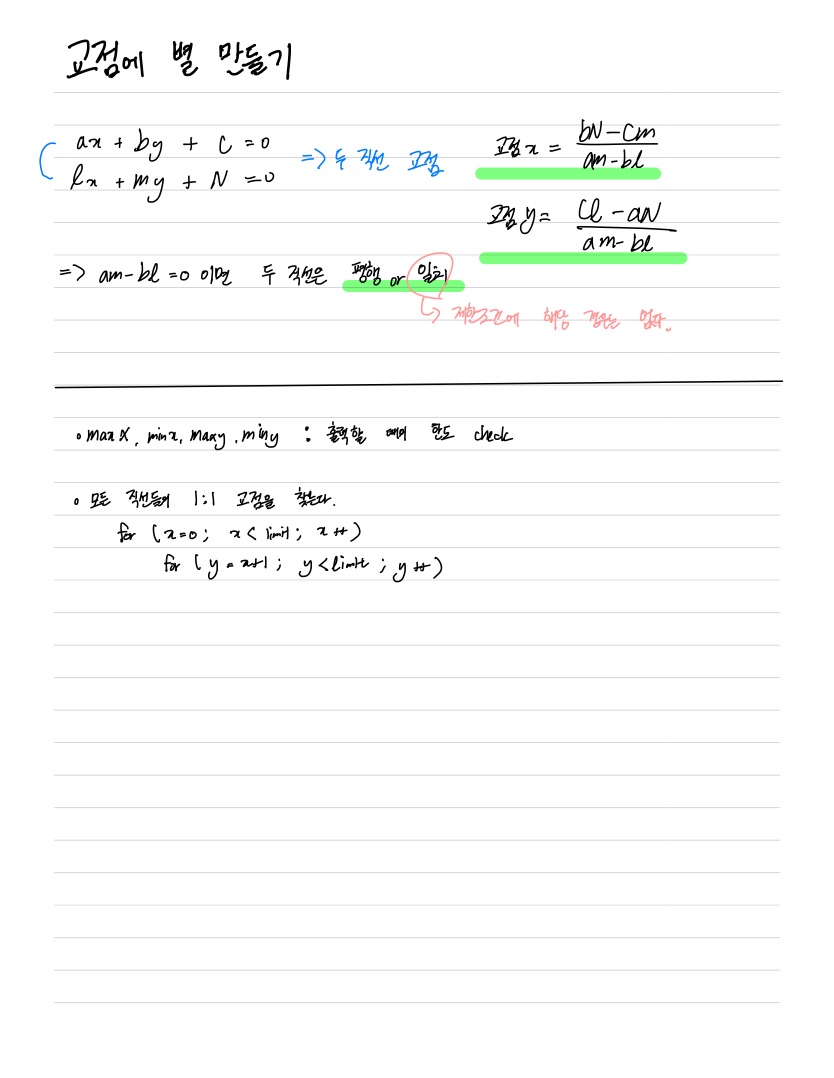 교점에 별 만들기
ax + by + C = 0
lx + my + N = 0
=> 두 직선 교점
교점 x = (bN - Cm) / (am - bl)
교점 y = (Cl - aN) / (am - bl)
=> am - bl = 0 이면 두 직선은 평행 or 일치
↳ 제한조건에 해당 경우는 없다.
• max x, min x, max y, min y : 출력할 때의 한도 check
• 모든 직선들의 1:1 교점을 찾는다.
for (x=0; x < limit; x++)
for (y = x+1; y < limit; y++)